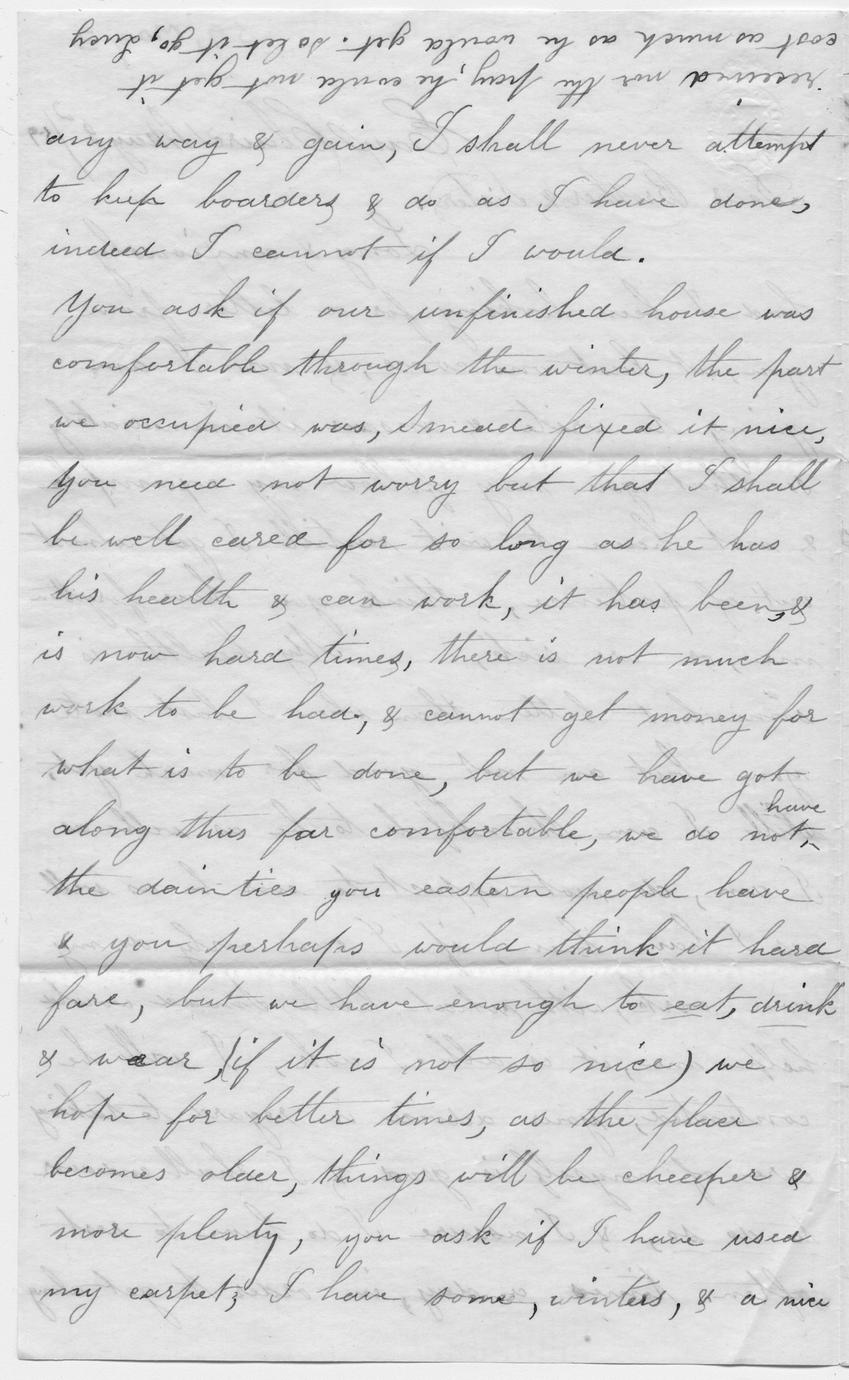 received nor the pay, he could not get it
cost as much as he would get. so let it go, Lucy
any way & gain, I shall never attempt
to keep boarders, & do as I have done,
indeed I cannot if I would.
You ask if our unfinished house was
comfortable through the winter, the part
we occupied was, Smead fixed it nice,
you need not worry but that I shall
be well cared for so long as he has
his health & can work, it has been, &
is now hard times, there is not much
work to be had, & cannot get money for
what is to be done, but we have got
along thus far comfortable, we do not have
the dainties you eastern people, have
& you perhaps would think it hard
fare, but we have enough to eat, drink
& wear, (if it is not so nice) we
hope for better times, as the place
becomes older, things will be cheeper &
more plenty, you ask if I have used
my carpet; I have some, winters, & a nice